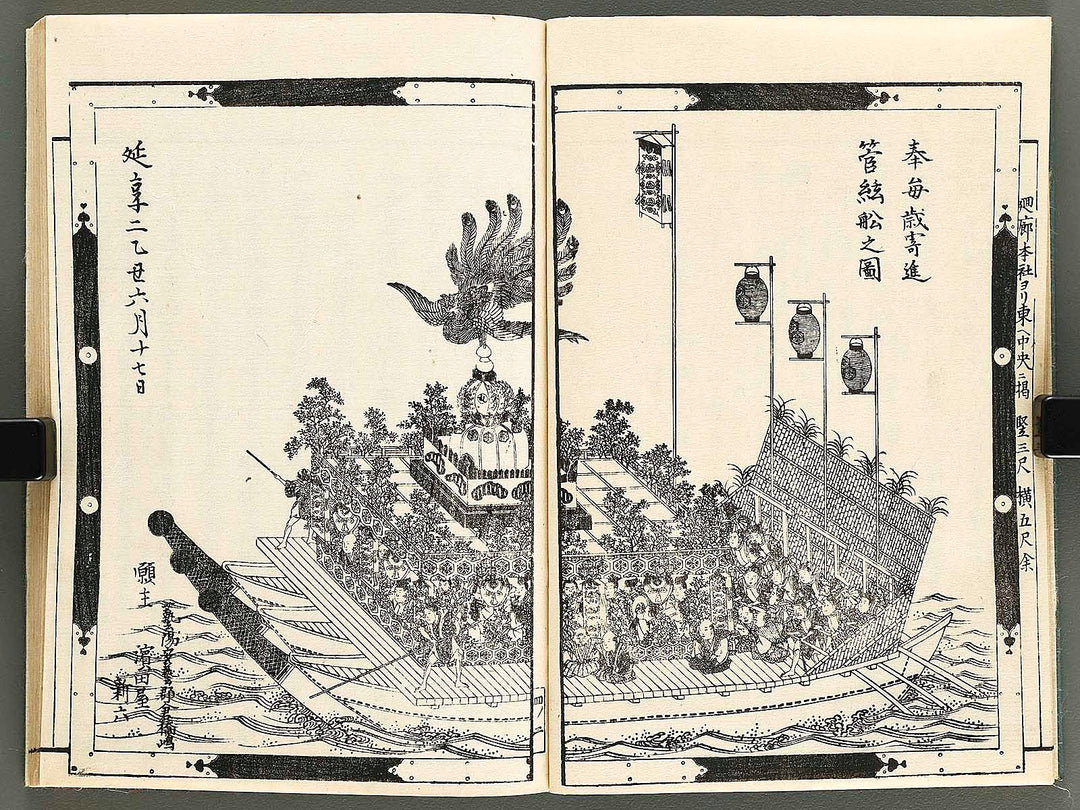 廻廊本社ヨリ東ヘ中央ニ掲 竪三尺 横五尺余
奉毎歳寄進
管絃舩之圖
延享二乙丑六月十七日
願主
藝陽安藝郡倉橋嶋
濱田屋
新六